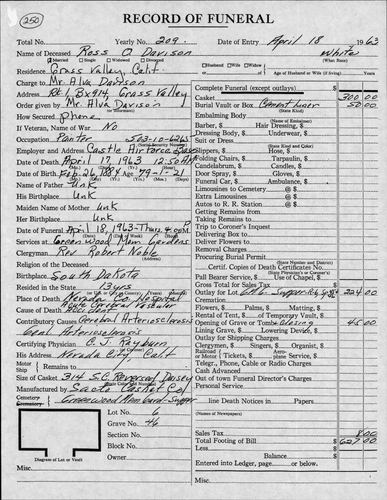 250
RECORD OF FUNERAL
Total No. Yearly No. 209 Date of Entry April 18 1963
Name of Deceased Ross O Davison White
Married Single Widowed Divorced Husband Wife Widow (What Race)
Residence Grass Valley, Calif. or Age of Husband or Wife (if living) Years
Charge to Mr. Alva Davison
Address Rt. 1, Bx 914, Grass Valley
Order given by Mr. Alva Davison
How Secured Phone
If Veteran, Name of War No
Occupation Painter 563-10-6265
(Social Security Number)
Employer and Address Castle Air Force Base
Date of Death April 17, 1963 12:50 AM
Date of Birth Feb. 26, 1884 Age 79-1-21
Name of Father Unk
His Birthplace Unk
Maiden Name of Mother Unk
Her Birthplace Unk
Date of Funeral April 18, 1963-Thurs. 4:00 PM
Services at Greenwood Mem Gardens
Clergyman Rev Robert Noble
Religion of the Deceased
Birthplace South Dakota
Resided in the State 13 yrs
Place of Death Nevada Co Hospital
Cause of Death Acute Cerebral Vascular Accident
Contributory Causes Cerebral Arteriosclerosis
Arteriosclerosis
Certifying Physician C. J. Rayburn
His Address Nevada City Calif
Motor Ship Remains to
Size of Casket 314
Manufactured by Sacto Casket Co
Cemetery Crematory
Lot No. 6
Grave No. 46
Section No.
Block No.
Owner
Diagram of Lot or Vault
Misc.
Complete Funeral (except outlays) $
Casket 300 00
Burial Vault or Box Cement liner 50 00
(State Kind)
Embalming Body
(Name of Embalmer)
Barber, $ Hair Dressing, $
Dressing Body, $ Underwear, $
Suit or Dress
(State Kind and Color)
Slippers, $ Hose, $
Folding Chairs, $ Tarpaulin, $
Candelabrum, $ Candles, $
Door Spray, $ Gloves, $
Funeral Car, $ Ambulance, $
Limousines to Cemetery @ $
Extra Limousines @ $
Autos to R. R. Station @ $
Getting Remains from
Taking Remains to
Trip to Coroner's Inquest
Delivering Box to
Deliver Flowers to
Removal Charges
Procuring Burial Permit
(State Number and District)
Certif. Copies of Death Certificates No.
(State Physician's or Coroner's)
Pall Bearer Service, $ Use of Chapel, $
Gross Total for Sales Tax
Outlay for Lot 224 00
Cremation
Flowers, $ Palms, $ Matting, $
Rental of Tent, $ of Temporary Vault, $
Opening of Grave or Tomb closing 45 00
Lining Grave, $ Lowering Device, $
Outlay for Shipping Charges
Clergymen, $ Singers, $ Organist, $
Railroad or Motor Tickets, $ Aeroplane Service, $
Telegr., Phone, Cable or Radio Charges
Cash Advanced
Out of town Funeral Director's Charges
Personal Service
line Death Notices in Papers
(Names of Newspapers)
Sales Tax 8 00
Total Footing of Bill $ 627 00
Less
Balance $
Entered into Ledger, page or below.
Misc.